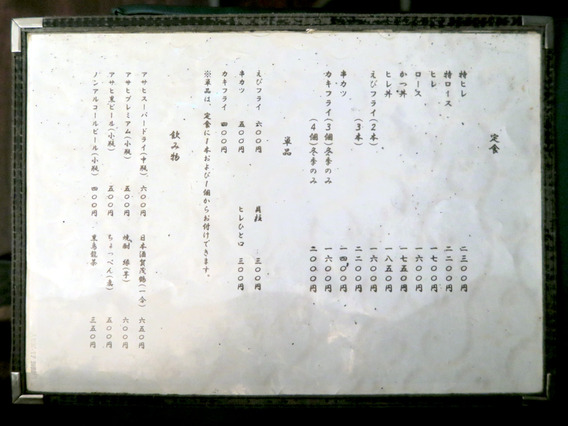 定食
特ヒレ 二三〇〇円
特ロース 二二〇〇円
ヒレ 一七〇〇円
ロース 一六〇〇円
かつ丼 一七五〇円
ヒレ丼 一八五〇円
えびフライ(2本) 一六〇〇円
(3本) 二二〇〇円
串カツ 一四〇〇円
カキフライ(3個)冬季のみ 一六〇〇円
(4個)冬季のみ 二〇〇〇円
単品
えびフライ 六〇〇円 貝柱 三〇〇円
串カツ 五〇〇円 ヒレひと口 三〇〇円
カキフライ 四〇〇円
※単品は、定食に1本および1個からお付けできます。
飲み物
アサヒスーパードライ(中瓶) 六〇〇円 日本酒賀茂鶴(一合) 六五〇円
アサヒプレミアム(小瓶) 五〇〇円 焼酎 (芋) 六〇〇円
アサヒ黒ビール(小瓶) 五〇〇円 ちょっぺん(麦) 五〇〇円
ノンアルコールビール(小瓶) 四〇〇円 黒烏龍茶 三五〇円